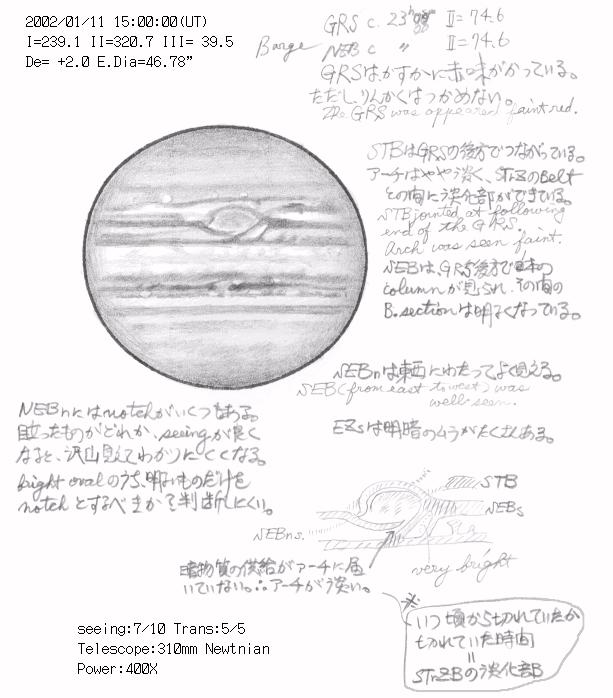 2002/01/11 15:00:00(UT)
I=239.1 II=320.7 III= 39.5
De= +2.0 E.Dia=46.78"
GRS c. 23 II=74.6
Barge NEB c 〃 II=74.6
GRSは、かすかに赤味がかっている。
ただし、りんかくはつかめない。
The GRS was appeared faint red.
STBはGRSの後方でつながっている。
アーチはやや淡く、STrZのBelt
との間に淡化部ができている。
STB jointed at following
end of the GRS.
Arch was seen faint.
NEBは、GRS後方で の
columnが見られ、その間の
B.sectionは明るくなっている。
NEBnは東西にわたってよく見える。
NEB(from east to west) was
well seen.
EZsは明暗のムラがたくさんある。
NEBnにはnotchがいくつもある。
目立ったものがどれか、seeingが良く
なると、沢山見えてわかりにくくなる。
bright ovalのうち、明るいものだけを
notchとするべきか?判断しにくい。
STB
NEBs
NEBns.
very bright
暗物質の供給がアーチに届
いていない。∴アーチがうすい。
※
いつ頃から切れていたか
切れていた時間
=
STrZBの淡化部
seeing:7/10 Trans:5/5
Telescope:310mm Newtnian
Power:400X